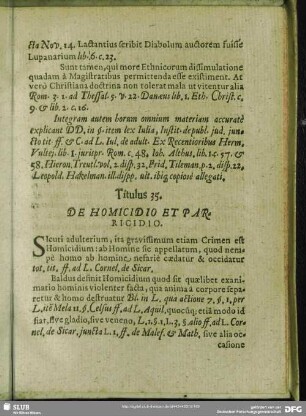 sta Nov. 14. Lactantius scribit Diabolum auctorem fuisse
Lupanarium lib. 6. c. 23.
Sunt tamen, qui more Ethnicorum dissimulatione
quadam à Magistratibus permittenda esse existiment. At
verò Christiana doctrina non tolerat mala ut vitentur alia
Rom. 3. 1. ad Thessal. 5. v. 22. Danæus lib. 1. Eth. Christ. c,
9. & lib. 2. c. 16.
Integram autem horum omnium materiam accuratè
explicant DD. in §. item lex Julia, Instit. de publ. jud. jun.
tit. ff. & C. ad L. Jul. de adult. Ex Recentioribus Herm,
Vultej. lib. 1. jurispr. Rom. c. 48, Joh. Althus, lib. 1. c. 57. &
58. Hieron. Treutl. vol. 2. disp. 32. Frid. Tileman p. 2. disp. 22.
Leopold. Hakelman. ill. disp. ult. ibiq́ copiosè allegati.
Titulus 35.
DE HOMICIDIO ET PAR-
RICIDIO.
Sicuti adulterium, ita gravissimum etiam Crimen est
Homicidium: ab Homine sic appellatum, quod nem-
pè homo ab homine, nefariè cædatur & occidatur
tot. tit. ff. ad L. Cornel. de Sicar.
Baldus definit Homicidium quod sit quælibet exani-
matio hominis violenter facta, qua anima à corpore sepa-
retur & homo destruatur Bl. in L. qua actione 7. §. 1. per
L. ite Mela 11. §. Celsus ff. ad L. Aquil. quocūq; etiā modo id
fiat, sive gladio, sive veneno, L. 1. §. 1. L. 3. § alio ff. ad L. Cor-
nel. de Sicar. juncta L. 1. ff. de Malef. & Math, sive alia oc-
casione
SLUB
Wir führen Wissen.
gefördert von der
Deutschen Forschungsgemeinschaft